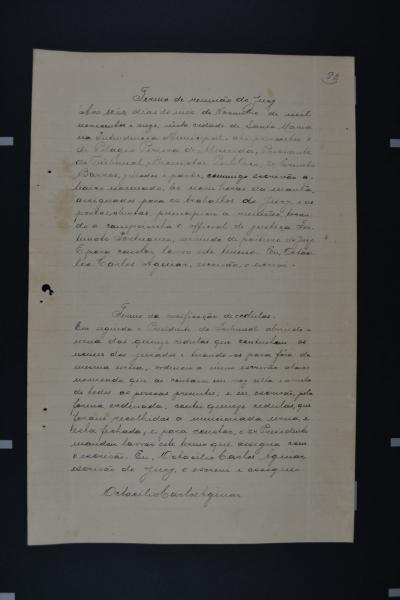 92
Termo de reunião do Jury
Aos seis dias do mez de Novembro de mil
novecentos e onze, nesta cidade de Santa Maria
na Intendencia Municipal, ahi presentes o
de Pelagio Pereira de Almeida, Presidente
do Tribunal, Promotor Publico,
Barros, jurados e partes, commigo escrivão a-
baixo nomeado, as nove horas da manhã,
designadas para os trabalhos do Jury, e as
portas abertas, principiou a reunião, tocan-
do a campainha o official de justiça For-
tunato servindo de porteiro do Jury
E para constar, lavro este termo. Eu, Octa-
cilio Carlos Aguiar, escrivão, o escrevi.
Termo da verificação de cedulas.
Em seguida o Presidente do Tribunal abrindo a
urna das quinze cedulas que continham os
nomes dos jurados e tirando-as para fóra da
mesma urna, ordenou a mim escrivão abaixo
nomeado que as contasse em voz alta a vista
de todas as pessoas presentes; e eu, escrivão, pela
forma ordenada, contei quinze cedulas, que
foram recolhidas a mencionada urna, e
esta fechada; e para constar, o Presidente
mandou lavrar este termo que assigna com
o escrivão. Eu, Octacilio Carlos Aguiar,
escrivão do Jury, o escrevi e assignei
Octacilio Carlos Aguiar